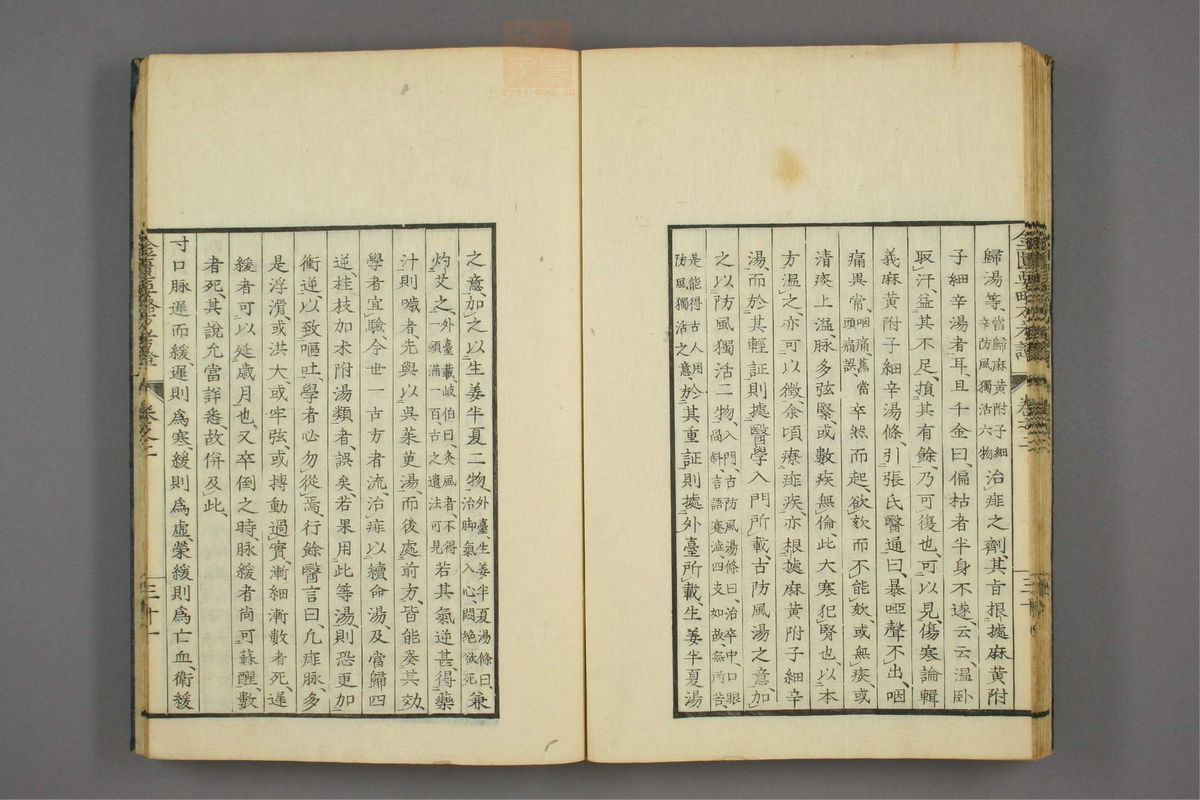 歸湯等、當歸麻黃附子細辛防風獨活六物治痱之劑、其旨根據麻黃附
子細辛湯者耳、且千金曰、偏枯者半身不遂云云、温卧
取汗、益其不足、損其有餘、乃可復也、可以見、傷寒論輯
義麻黃附子細辛湯條、引張氏醫通曰、暴啞聲不出、咽
痛異常、咽痛、舊當頭痛誤、卒然而起、欲欬而不能欬、或無痰、或
清痰上溢、脉多弦緊、或數疾無倫、此大寒犯腎也、以本
方温之、亦可以徴、余頃療痱疾、亦根據麻黃附子細辛
湯、而於其輕証、則據醫學入門所載、古防風湯之意、加
之以防風獨活二物、入門、古防風湯條曰、治卒中、口眼喎斜、言語蹇澁、四支如故、無所苦、
是能得古人用於防風獨活之意、於其重証、則據外臺所載、生姜半夏湯
之意、加之以生姜半夏二物、外臺、生姜半夏湯條曰、治脚氣入心、悶絶欲死、兼
灼艾之、外臺載、岐伯曰、灸風者、不得一頓滿一百、古之遺法可見、若其氣逆甚、得藥
汁則噦者、先與以吳茱萸湯、而後處前方、皆能奏其効、
學者宜驗、今世一古方者流、治痱以續命湯、及當歸四
逆、桂枝加朮附湯類者、誤矣、若果用此等湯、則恐更加
衝逆、以致嘔吐、學者必勿從焉、行餘醫言曰、凡痱脉、多
是浮滑、或洪大、或牢弦、或搏動過實、漸細漸數者死、遲
緩者可以延歳月也、又卒倒之時、脉緩者尚可蘇醒、數
者死、其說允當詳悉、故併及此、
寸口脉遲而緩、遲則爲寒、緩則爲虛、榮緩則爲亡血、衛緩
三十一